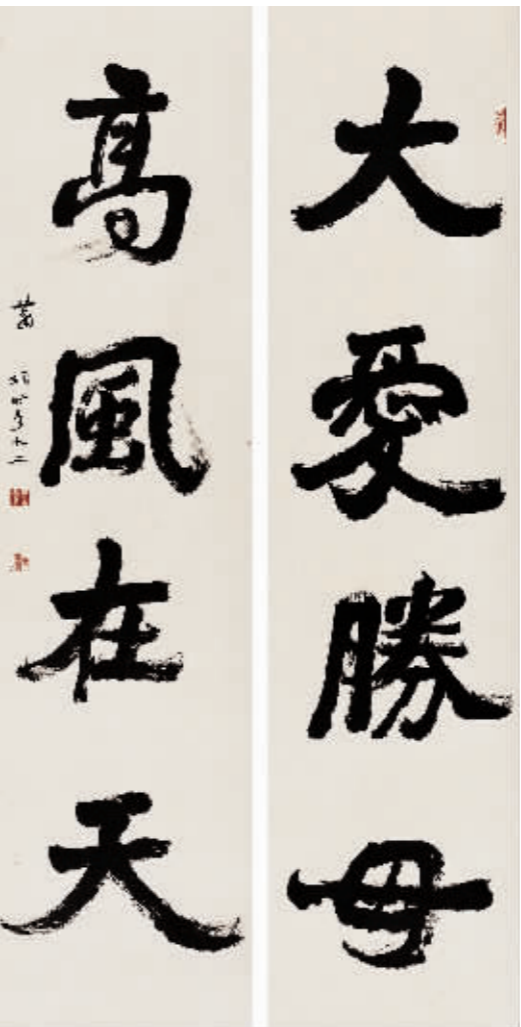 大愛勝母
高風在天